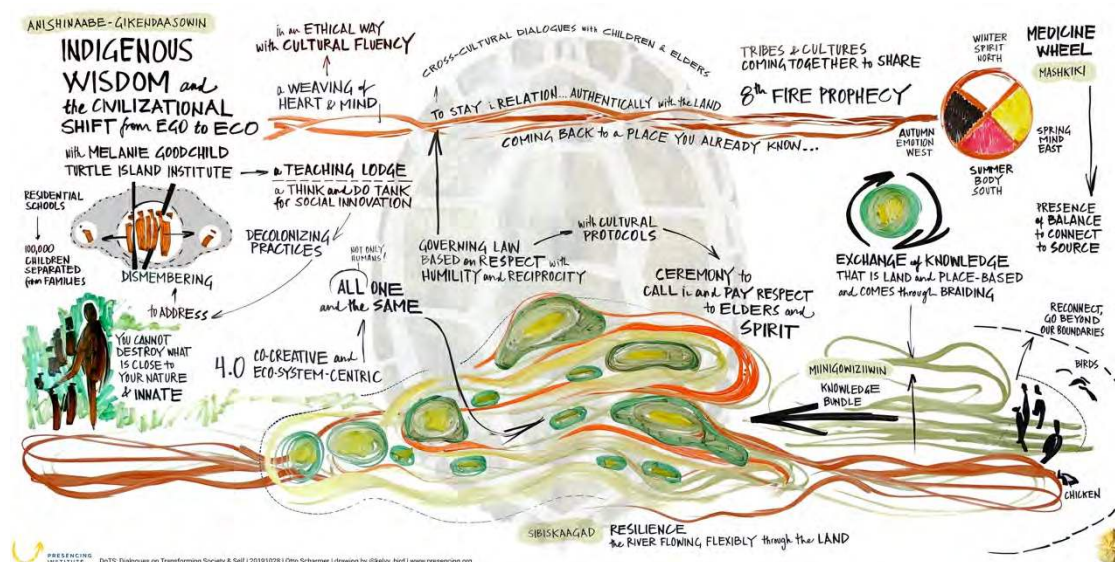 ANISHINAABE-GIKENDAASOWIN
INDIGENOUS
WISDOM and
the CIVILIZATIONAL
SHIFT from EGO to ECO
with MELANIE GOODCHILD
TURTLE ISLAND INSTITUTE
a TEACHING LODGE
a THINK and DO TANK
for SOCIAL INNOVATION
in an ETHICAL WAY
with CULTURAL FLUENCY
a WEAVING of
HEART & MIND
CROSS-CULTURAL DIALOGUES with CHILDREN & ELDERS
TO STAY in RELATION... AUTHENTICALLY with the LAND
COMING BACK to a PLACE YOU ALREADY KNOW...
TRIBES & CULTURES
COMING TOGETHER to SHARE
8th FIRE PROPHECY
WINTER
SPIRIT
NORTH
AUTUMN
EMOTION
WEST
SPRING
MIND
EAST
SUMMER
BODY
SOUTH
MEDICINE
WHEEL
MASHKIKI
PRESENCE
of BALANCE
to CONNECT
to SOURCE
RESIDENTIAL
SCHOOLS
100,000
CHILDREN
SEPARATED
from FAMILIES
DISMEMBERING
to ADDRESS
DECOLONIZING
PRACTICES
YOU CANNOT
DESTROY WHAT
IS CLOSE to
YOUR NATURE
& INNATE
NOT ONLY
HUMANS!
ALL ONE
and the SAME
4.0 CO-CREATIVE and
ECO-SYSTEM-CENTRIC
GOVERNING LAW
BASED on RESPECT with
HUMILITY and RECIPROCITY
with CULTURAL
PROTOCOLS
CEREMONY to
CALL in and PAY RESPECT
to ELDERS and
SPIRIT
EXCHANGE of KNOWLEDGE
THAT IS LAND and PLACE-BASED
and COMES through BRAIDING
MIINIGOWIZIIWIN
KNOWLEDGE
BUNDLE
RECONNECT,
GO BEYOND
OUR BOUNDARIES
BIRDS
CHICKEN
SIBISKAAGAD
RESILIENCE
the RIVER FLOWING FLEXIBLY through the LAND
PRESENCING
INSTITUTE
DoTS: Dialogues on Transforming Society & Self | 20191028 | Otto Scharmer | drawing by @kelvy_bird | www.presencing.org